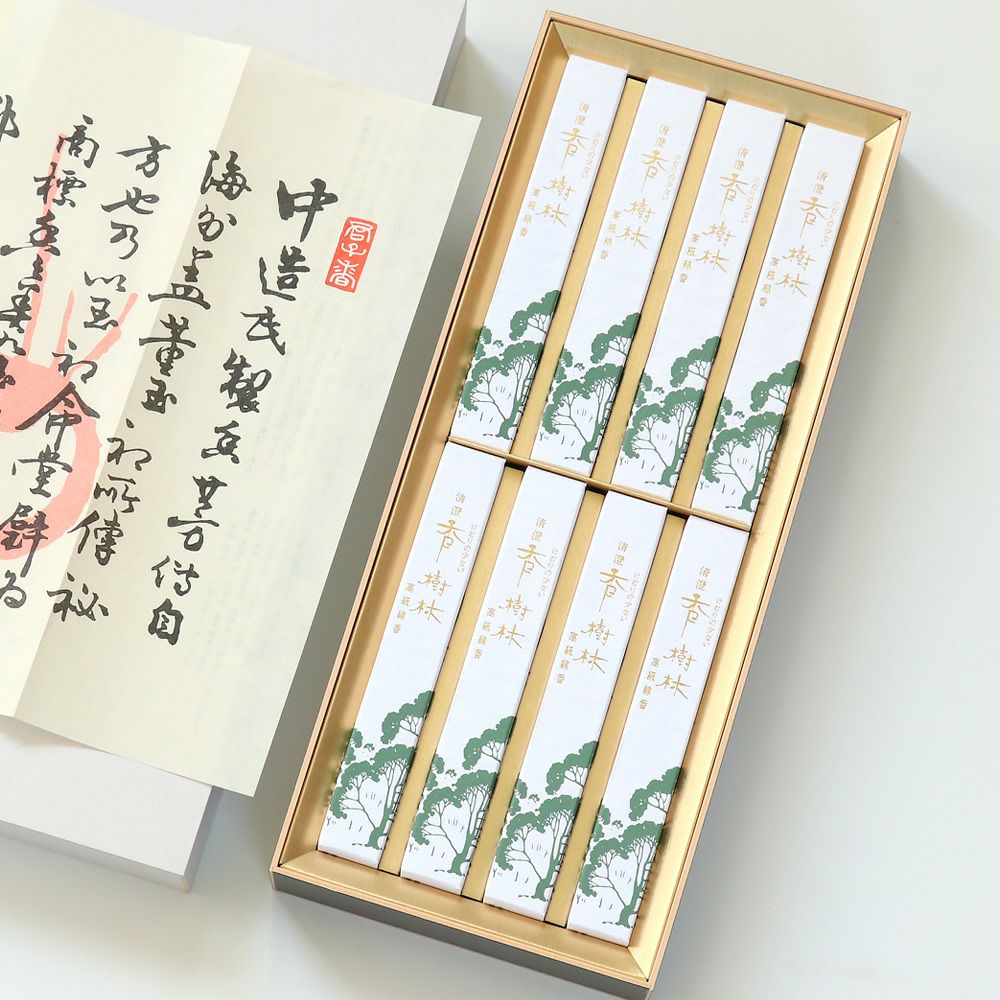 君子香
中造氏製香其方傳自
海外盖董玉初所傳秘
方也乃以玉初命堂
高標
清澄
けむりの少ない
香樹林
高級線香
清澄
けむりの少ない
香樹林
高級線香
清澄
けむりの少ない
香樹林
高級線香
清澄
けむりの少ない
香樹林
高級線香
清澄
けむりの少ない
香樹林
高級線香
清澄
けむりの少ない
香樹林
高級線香
清澄
けむりの少ない
香樹林
高級線香
清澄
けむりの少ない
香樹林
高級線香